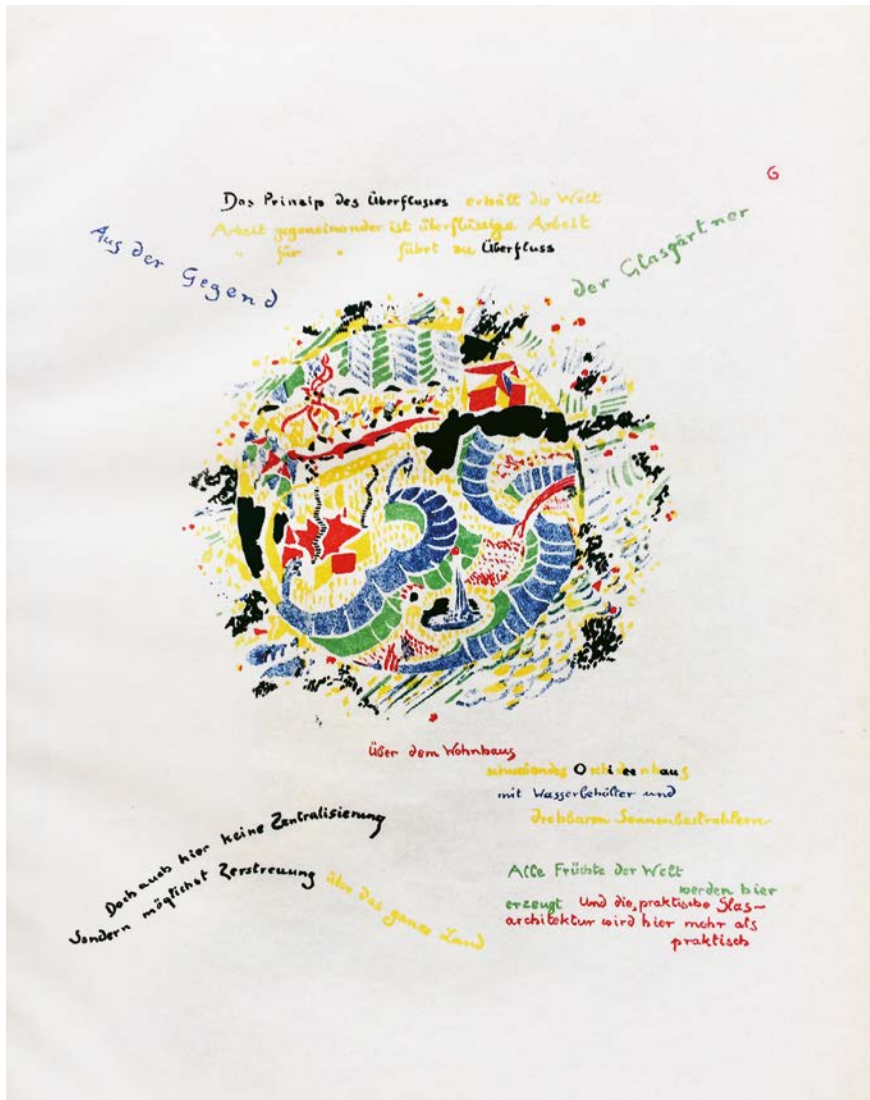 6
Das Prinzip des Überflusses erhält die Welt
Arbeit gegeneinander ist überflüssige Arbeit
" für " führt zu Überfluss
Aus der Gegend
der Glasgärtner
über dem Wohnhaus
Orchideenhaus
mit Wasserbehälter und
drehbaren Sonnenbestrahlern
Doch auch hier keine Zentralisierung
Sondern möglichst Zerstreuung über das ganze Land
Alle Früchte der Welt
werden hier
erzeugt Und die „praktische Glas-
architektur wird hier mehr als
praktisch